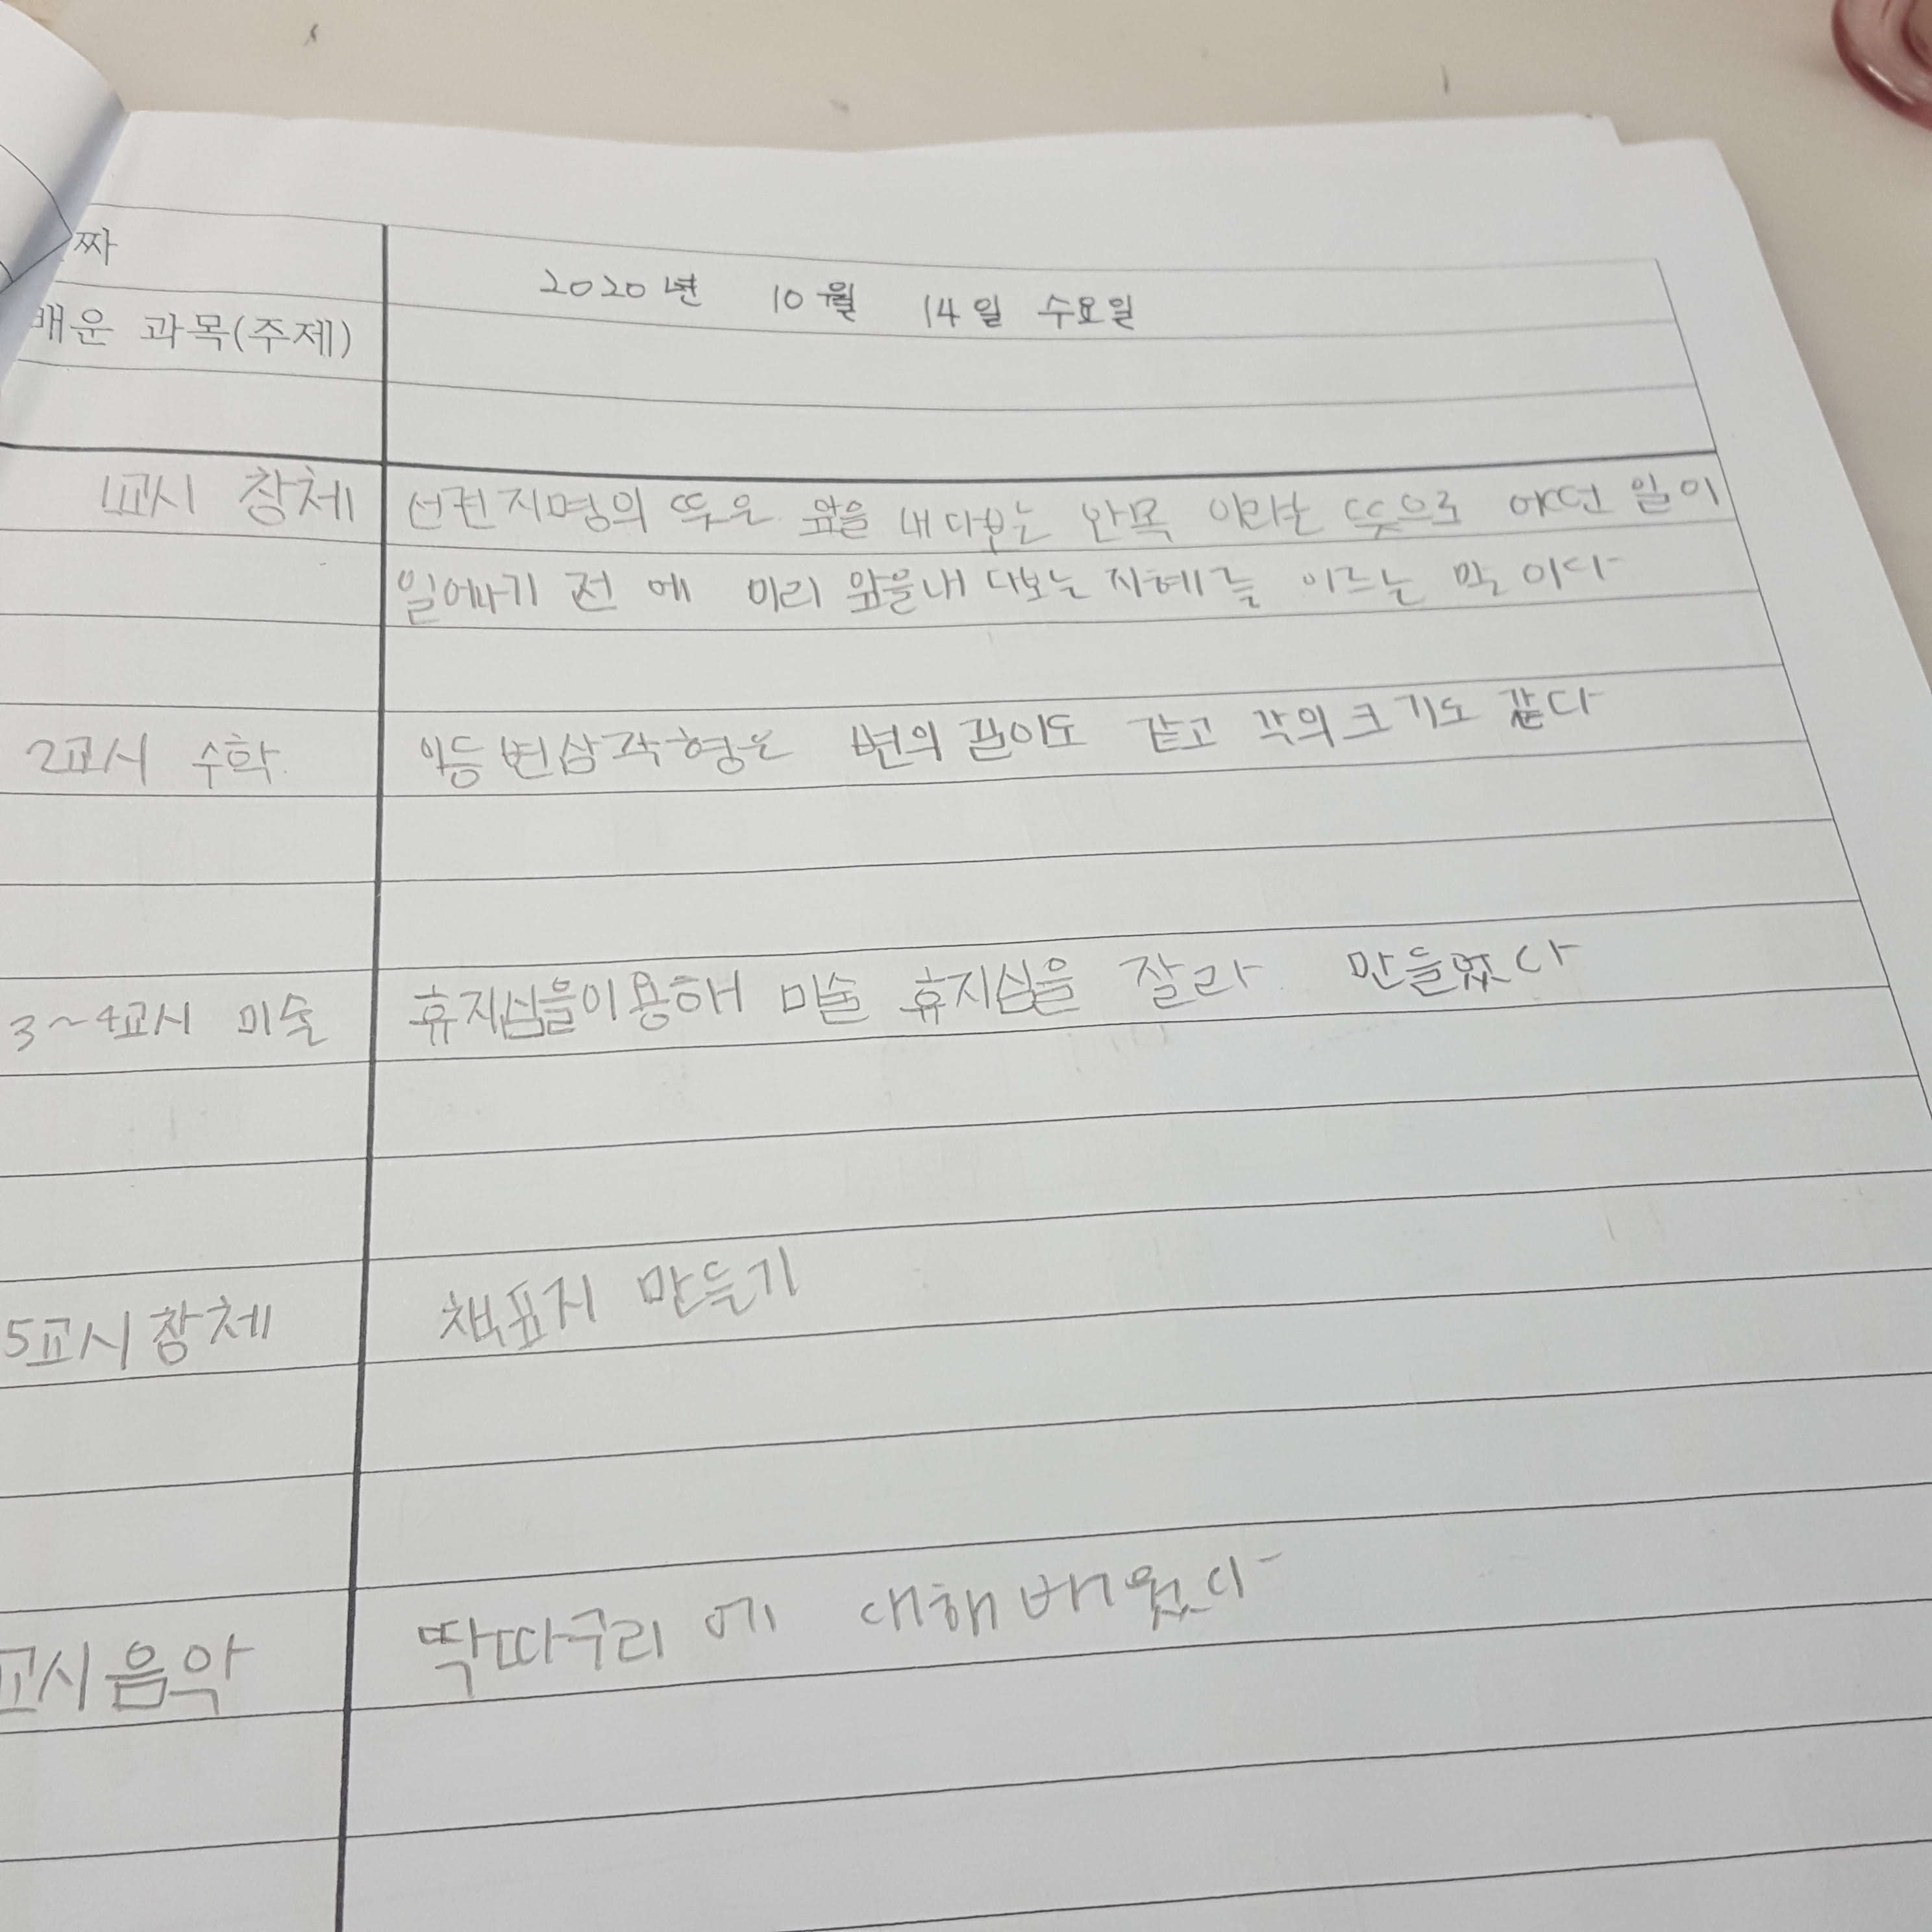 짜 2020년 10월 14일 수요일
배운 과목(주제)
1교시 창체 선견지명의 뜻은 앞을 내다보는 안목 이라는 뜻으로 어떤 일이
전 에 미리 앞을내 다보는 지혜를 이르는 말 이다
2교시 수학 이등변삼각형은 변의 길이도 같고 각의크기도 같다
3~4교시 미술 휴지심을이용해 미술 휴지심을 잘라 만들었다
5교시창체 책표지 만들기
교시음악 딱따구리 에 대해배웠다